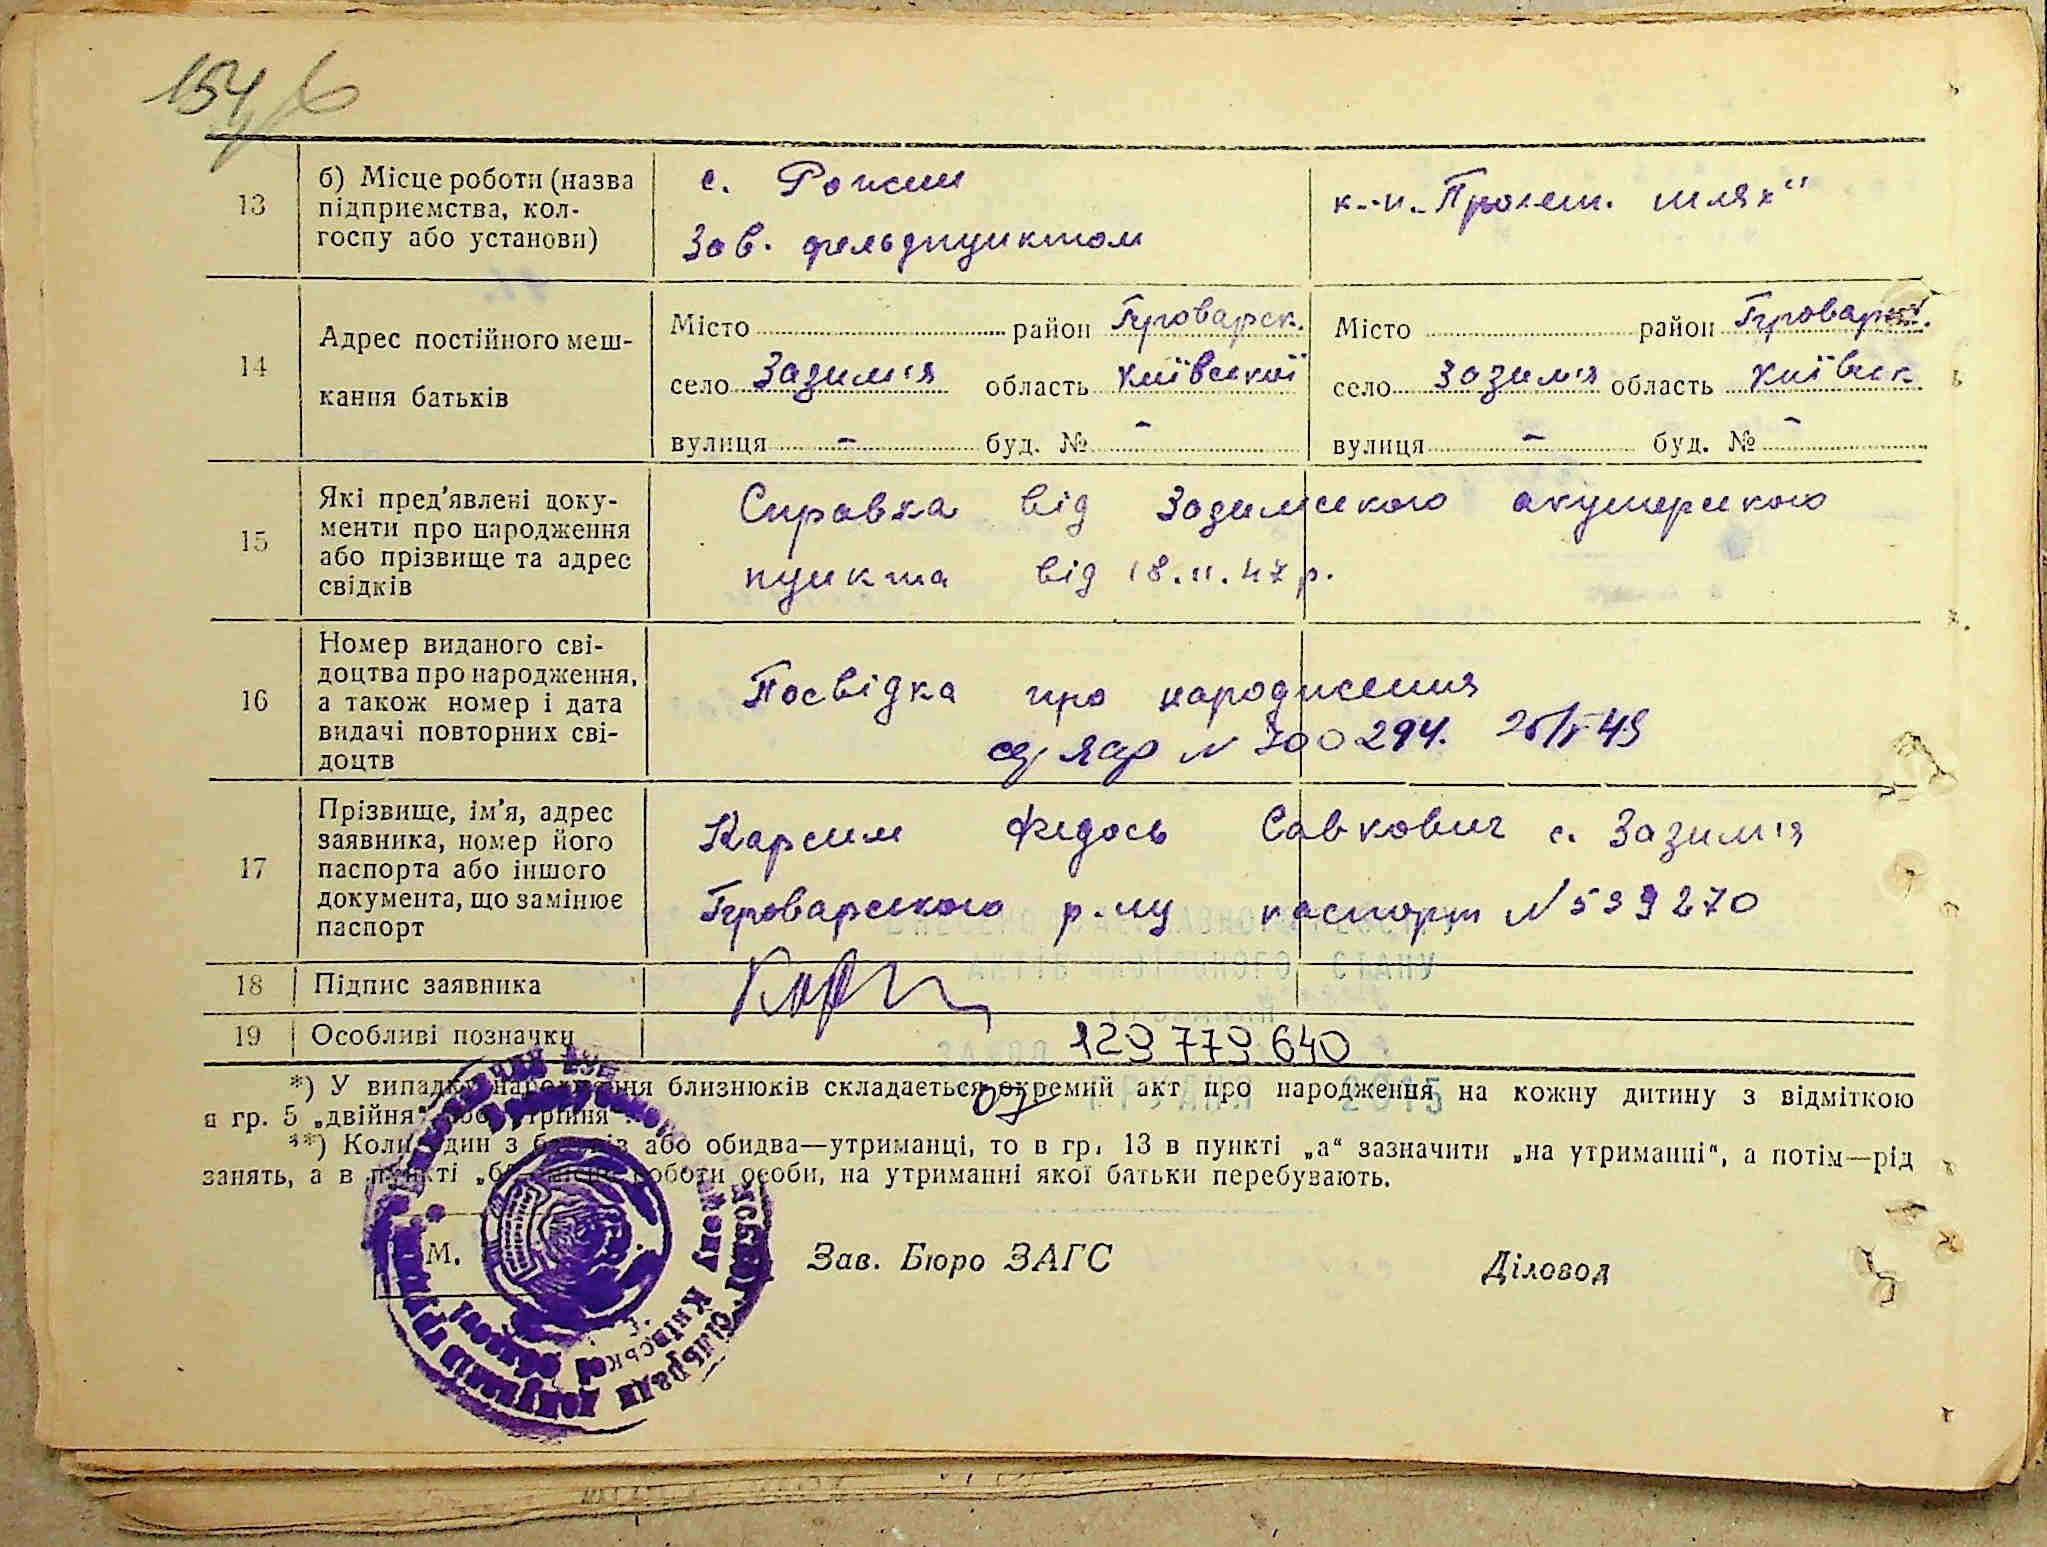 154
13
б) Місце роботи (назва
підприємства, кол-
госпу або установи)
с. Рожни
Зав. фельдпунктом
к-п. „Пролет. шлях"
14
Адрес постійного меш-
кання батьків
Місто район Броварск.
село Зазим'я область Київської
вулиця – буд. № –
Місто район Броварск.
село Зазим'я область Київск
вулиця – буд. № –
15
Які пред'явлені доку-
менти про народження
або прізвище та адрес
свідків
Справка від Зазимського акушерского
пункта від 18.11.47 р.
16
Номер виданого сві-
доцтва про народження,
а також номер і дата
видачі повторних сві-
доцтв
Посвідка про народження
N 700294.
17
Прізвище, ім'я, адрес
заявника, номер його
паспорта або іншого
документа, що замінює
паспорт
Карсим Федось Савкович с. Зазим'я
Броварского р-ну паспорт N 539270
18
Підпис заявника
19
Особливі позначки
АКТІВ ЦИВІЛЬНОГО СТАНУ
129 779 640
ГРУДНЯ 2015
*) У випадку народження близнюків складається окремий акт про народження на кожну дитину з відміткою
в гр. 5 „двійня" або „трійня".
**) Коли один з батьків або обидва—утриманці, то в гр. 13 в пункті „а" зазначити „на утриманні", а потім—рід
занять, а в пункті „б"—місце роботи особи, на утриманні якої батьки перебувають.
М.
Зав. Бюро ЗАГС
Діловод